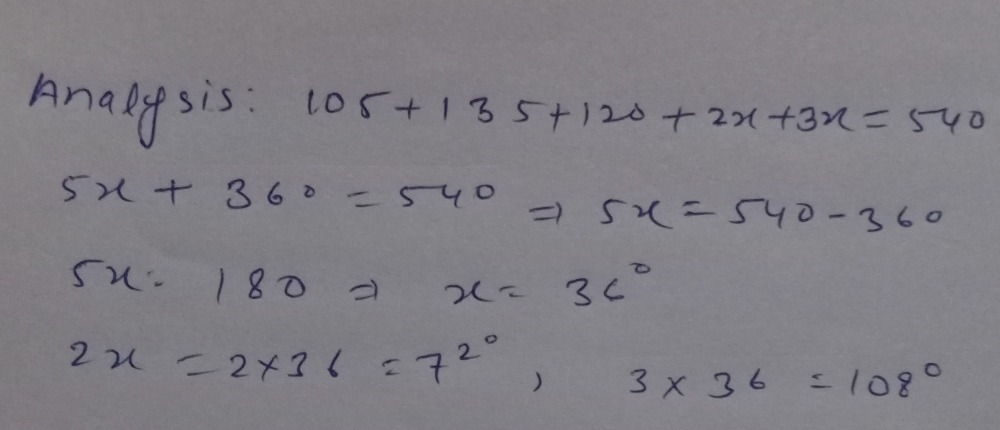 Analysis: 105+135+120+2x+3x=540
5x+360=540 ⇒ 5x=540-360
5x= 180 ⇒ x= 36°
2x =2×36 =72°, 3×36 =108°